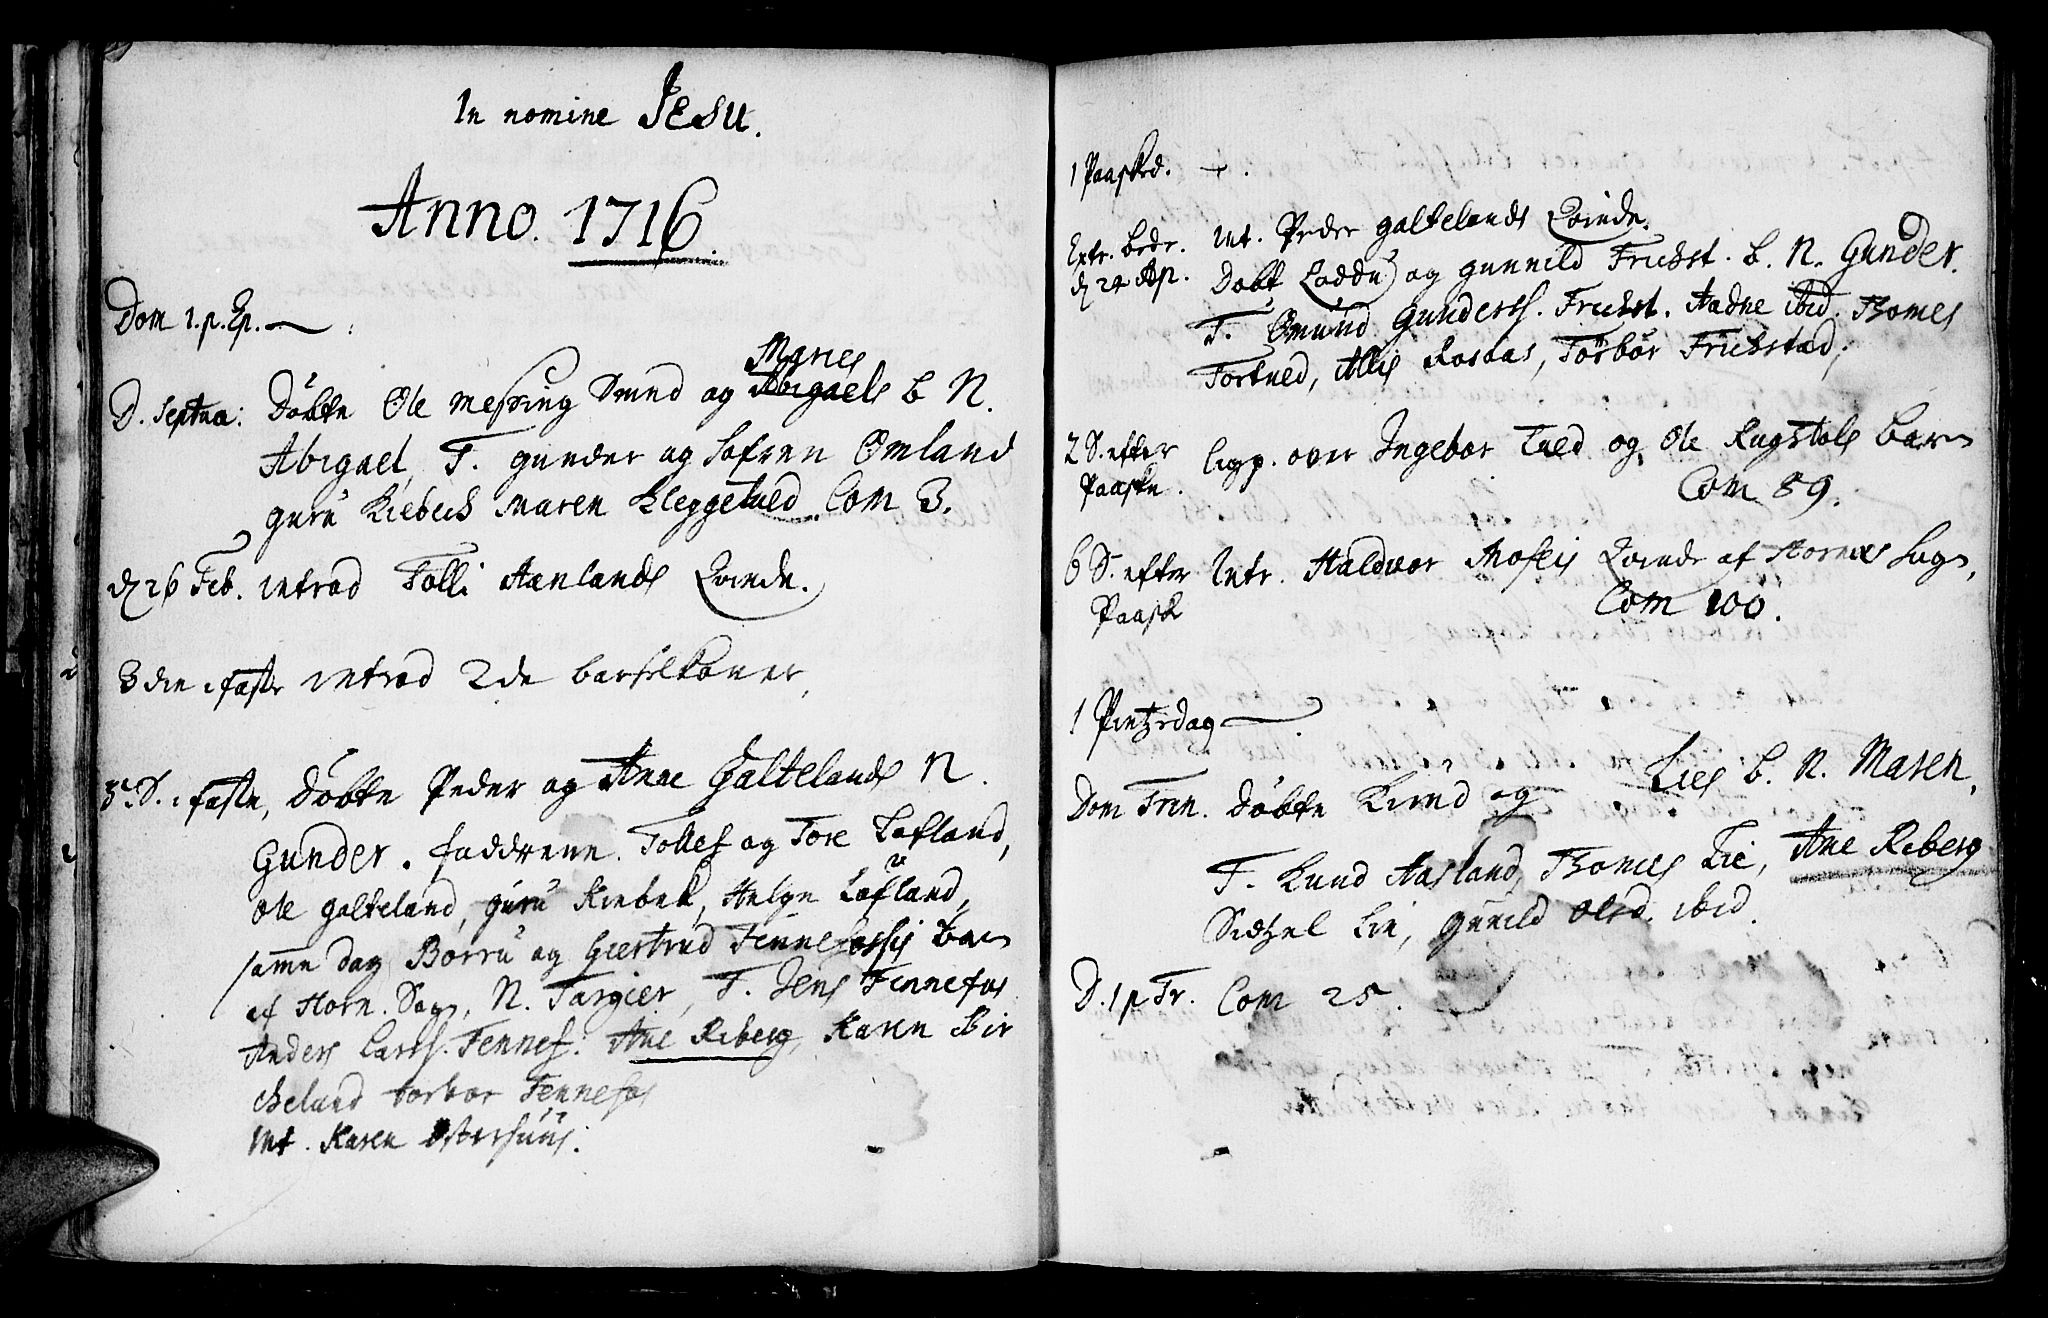 In nomine Jesu.
Anno. 1716.
Dom 1. p. Ep.
Agnes
D. Septua: Døbte Ole Messing Smed og Abigaels b N.
Abigael, T. gunder og Sofren Omland
guru Kiebeck Maren Kleggetued Com 3.
d 26 Feb. introd Tolli Aanlands Qvinde.
3die i faste introd 2de barselkoner,
3. S. i faste, Døbte Peder og Anne Galtelands N.
Gunder. faddrene. Tollef og Tore Lofland,
Ole galteland, guru Kiebek, Helge Lofland,
samme dag Børru og Giertrud Fennefossis barn
af Horn. Sogn, N. Targier, F. Jens Fennefos
Anders Larss. Fennef: Ane Riberg, Karen Bir
cheland torbor Fennefos
Int. Karen Østerhuus.
1 Paasked.
Extr. bedr. Int. Peder galtelands Qvinde.
d 24 Ap. Døbt Loddu og gunnild Frichst. b. N. Gunder.
T. Omund Gunderss. Frichst. Aadne ibid. Thomes
Fortued, Allis Rosaas, Torbor Frichstad,
2 S. efter Ligp. over Ingebor Tued og Ole Rugstols barn
Paaske. Com 89.
6 S. efter Intr. Haldvor Moseis Qvinde af Hornes Sogn,
Paask Com 100.
1 Pintzedag
Dom Trin. Døbte Knud og Lies b. N. Maren,
T. Knud Aasland, Thomes Lie, Ane Riberg
Sidtzel Lie, Gunild Olsd. ibid.
D. 1 p Tr. Com 25.